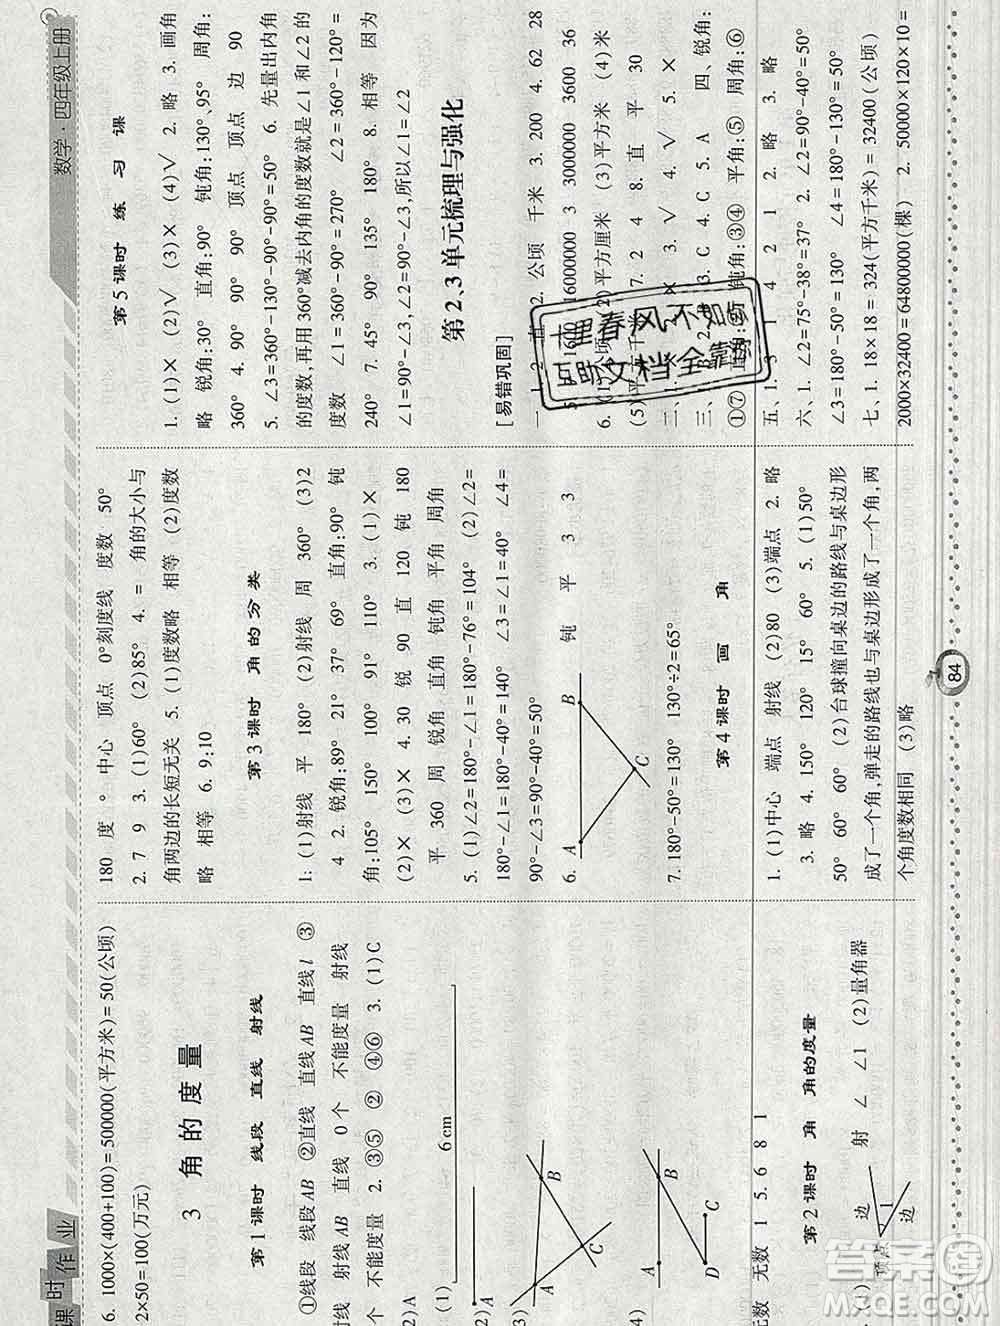 课时作业
数学·四年级上册
6. 1000×(400+100)=500000(平方米)=50(公顷)
2×50=100(万元)
3 角的度量
第1课时 线段 直线 射线
①线段 线段AB ②直线 直线AB 直线l ③
射线 射线AB 直线 0个 不能度量 射线
个 不能度量 2. ③⑤ ② ④⑥ 3. (1)C
2)A
(1) 6 cm
A
3) A B C
4) A B D C
无数 无数 1 5. 6 8 1
第2课时 角 角的度量
1. (1) 边 顶点 1 边 射 ∠ ∠1 (2)量角器
180 度 ° 中心 顶点 0°刻度线 度数 50°
2. 7 9 3. (1)60° (2)85° 4. = 角的大小与
角两边的长短无关 5. (1)度数略 相等 (2)度数
略 相等 6. 9:10
第3课时 角的分类
1. (1)射线 平 180° (2)射线 周 360° (3)2
4 2. 锐角:89° 21° 37° 69° 直角:90° 钝
角:105° 150° 100° 91° 110° 3. (1)×
(2)× (3)× 4. 30 锐 90 直 120 钝 180
平 360 周 锐角 直角 钝角 平角 周角
5. (1)∠2=180°-∠1=180°-76°=104° (2)∠2=
180°-∠1=180°-40°=140° ∠3=∠1=40° ∠4=
90°-∠3=90°-40°=50°
6. A B C 钝 平 3 3
7. 180°-50°=130° 130°÷2=65°
第4课时 画角
1. (1)中心 端点 射线 (2)80 (3)端点 2. 略
3. 略 4. 150° 120° 15° 60° 5. (1)50°
50° 60° 60° (2)台球撞向桌边的路线与桌边形
成了一个角,弹走的路线也与桌边形成了一个角,两
个角度数相同 (3)略
第5课时 练习课
1. (1)× (2)√ (3)× (4)√ 2. 略 3. 画角
略 锐角:30° 直角:90° 钝角:130°、95° 周角:
360° 4. 90° 90° 90° 顶点 顶点 边 90
5. ∠3=360°-130°-90°-90°=50° 6. 先量出内角
的度数,再用360°减去内角的度数就是∠1和∠2的
度数 ∠1=360°-90°=270° ∠2=360°-120°=
240° 7. 45° 90° 135° 180° 8. 相等 因为
∠1=90°-∠3,∠2=90°-∠3,所以∠1=∠2
第2、3单元梳理与强化
[易错巩固]
一、1. 2 直 2. 公顷 千米 3. 200 4. 62 28
5. 1600 16000000 3 3000000 3600 36
6. (1)公顷 (2)平方厘米 (3)平方米 (4)米
(5)平方千米 7. 2 4 8. 直 平 30
二、 × 3. √ 4. √ 5. ×
三、 B 2. 3. C 4. C 5. A 四、锐角:
①⑦ 直角:② 钝角:③④ 平角:⑤ 周角:⑥
五、1. 3 1 4 2 1 2. 略 3. 略
六、1. ∠2=75°-38°=37° 2. ∠2=90°-40°=50°
∠3=180°-50°=130° ∠4=180°-130°=50°
七、1. 18×18=324(平方千米)=32400(公顷)
2000×32400=64800000(棵) 2. 50000×120×10=
84
一哩春风不如
互助文档全靠
答案圈
MXQE.COM